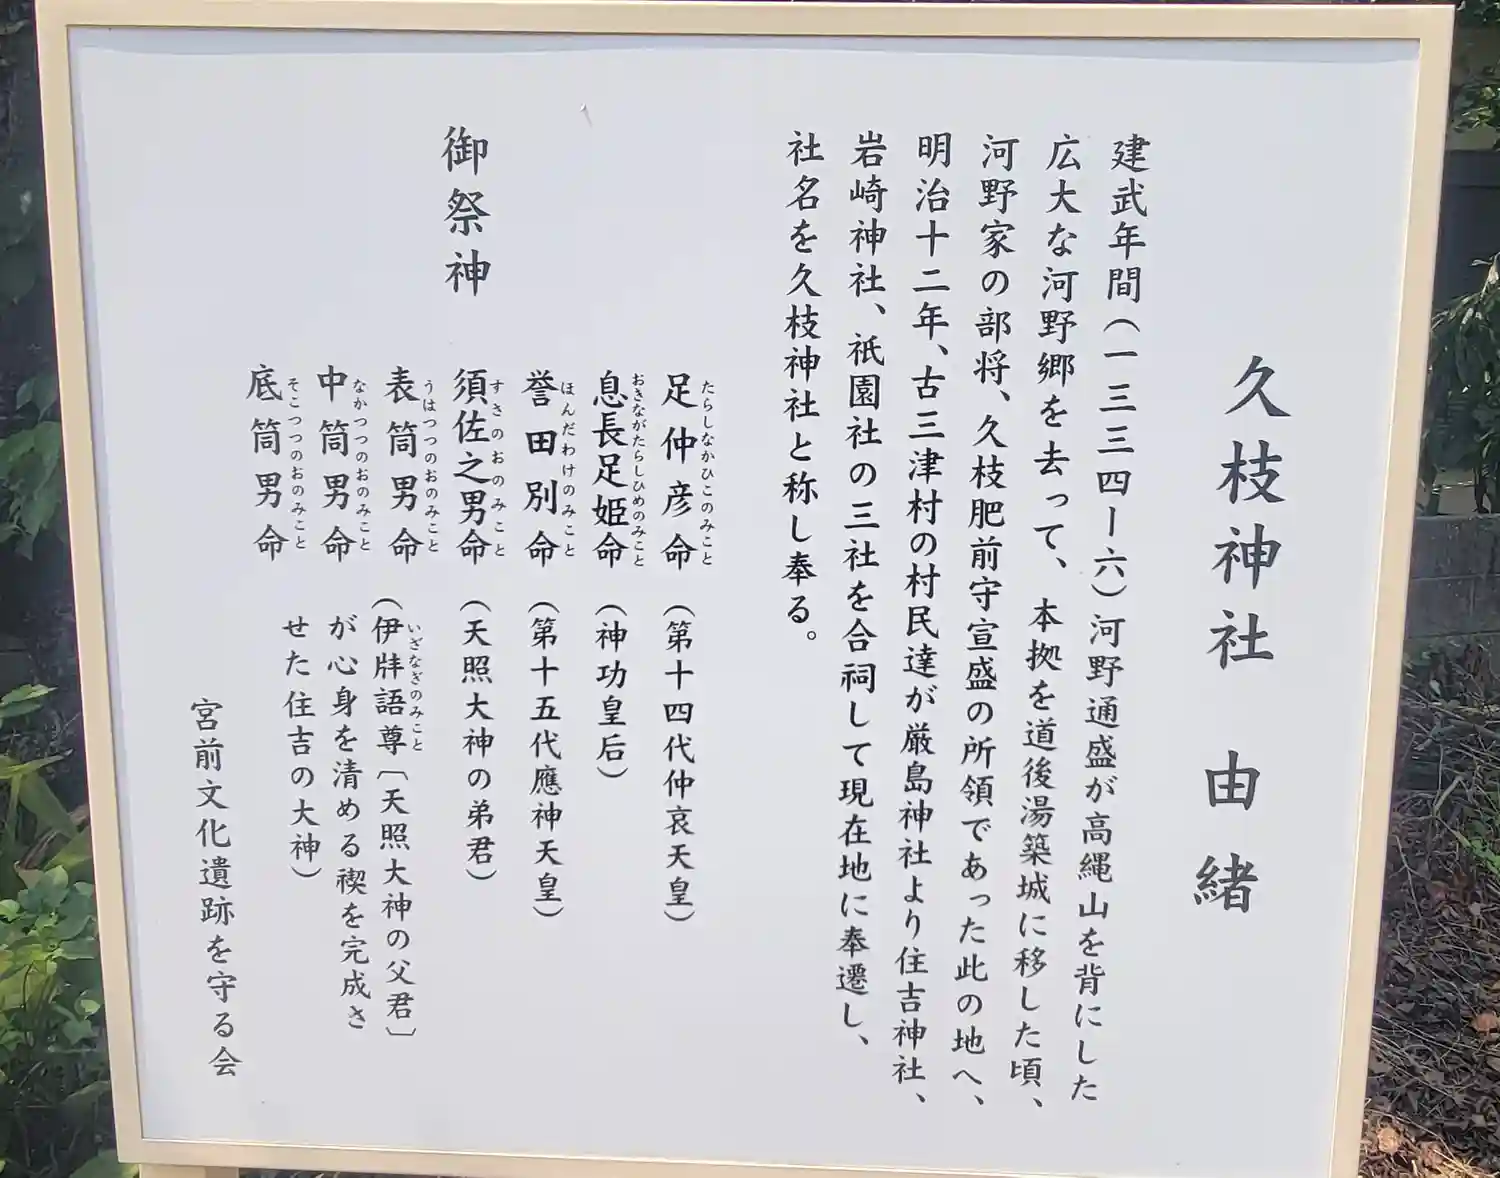 久枝神社　由緒
建武年間（一三三四ー六）河野通盛が高縄山を背にした
広大な河野郷を去って、本拠を道後湯築城に移した頃、
河野家の部将、久枝肥前守宣盛の所領であった此の地へ、
明治十二年、古三津村の村民達が厳島神社より住吉神社、
岩崎神社、祇園社の三社を合祠して現在地に奉遷し、
社名を久枝神社と称し奉る。
御祭神
足仲彦命（第十四代仲哀天皇）
たらしなかひこのみこと
息長足姫命（神功皇后）
おきながたらしひめのみこと
誉田別命（第十五代應神天皇）
ほんだわけのみこと
須佐之男命（天照大神の弟君）
すさのおのみこと
表筒男命
うはつつのおのみこと
中筒男命
なかつつのおのみこと
底筒男命
そこつつのおのみこと
（伊牂語尊〔天照大神の父君〕
いざなぎのみこと
が心身を清める禊を完成さ
せた住吉の大神）
宮前文化遺跡を守る会